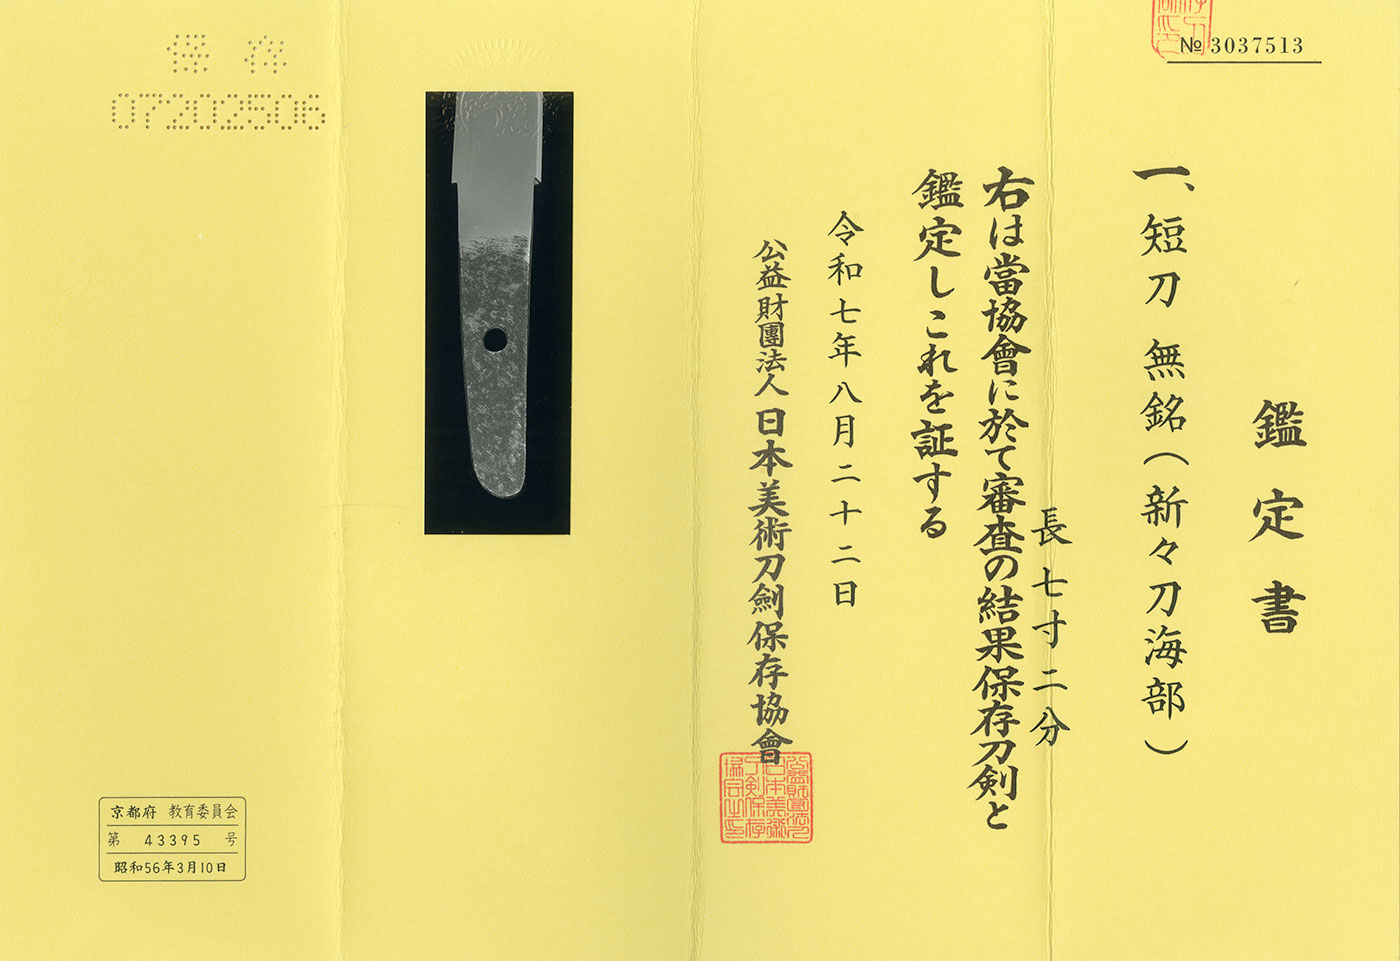 № 3037513
鑑定書
一、短刀 無銘（新々刀海部）
長七寸二分
右は當協會に於て審査の結果保存刀剣と
鑑定しこれを証する
令和七年八月二十二日
公益財團法人日本美術刀劍保存協會
保存
07202506
京都府 教育委員会
第 43395 号
昭和56年3月10日